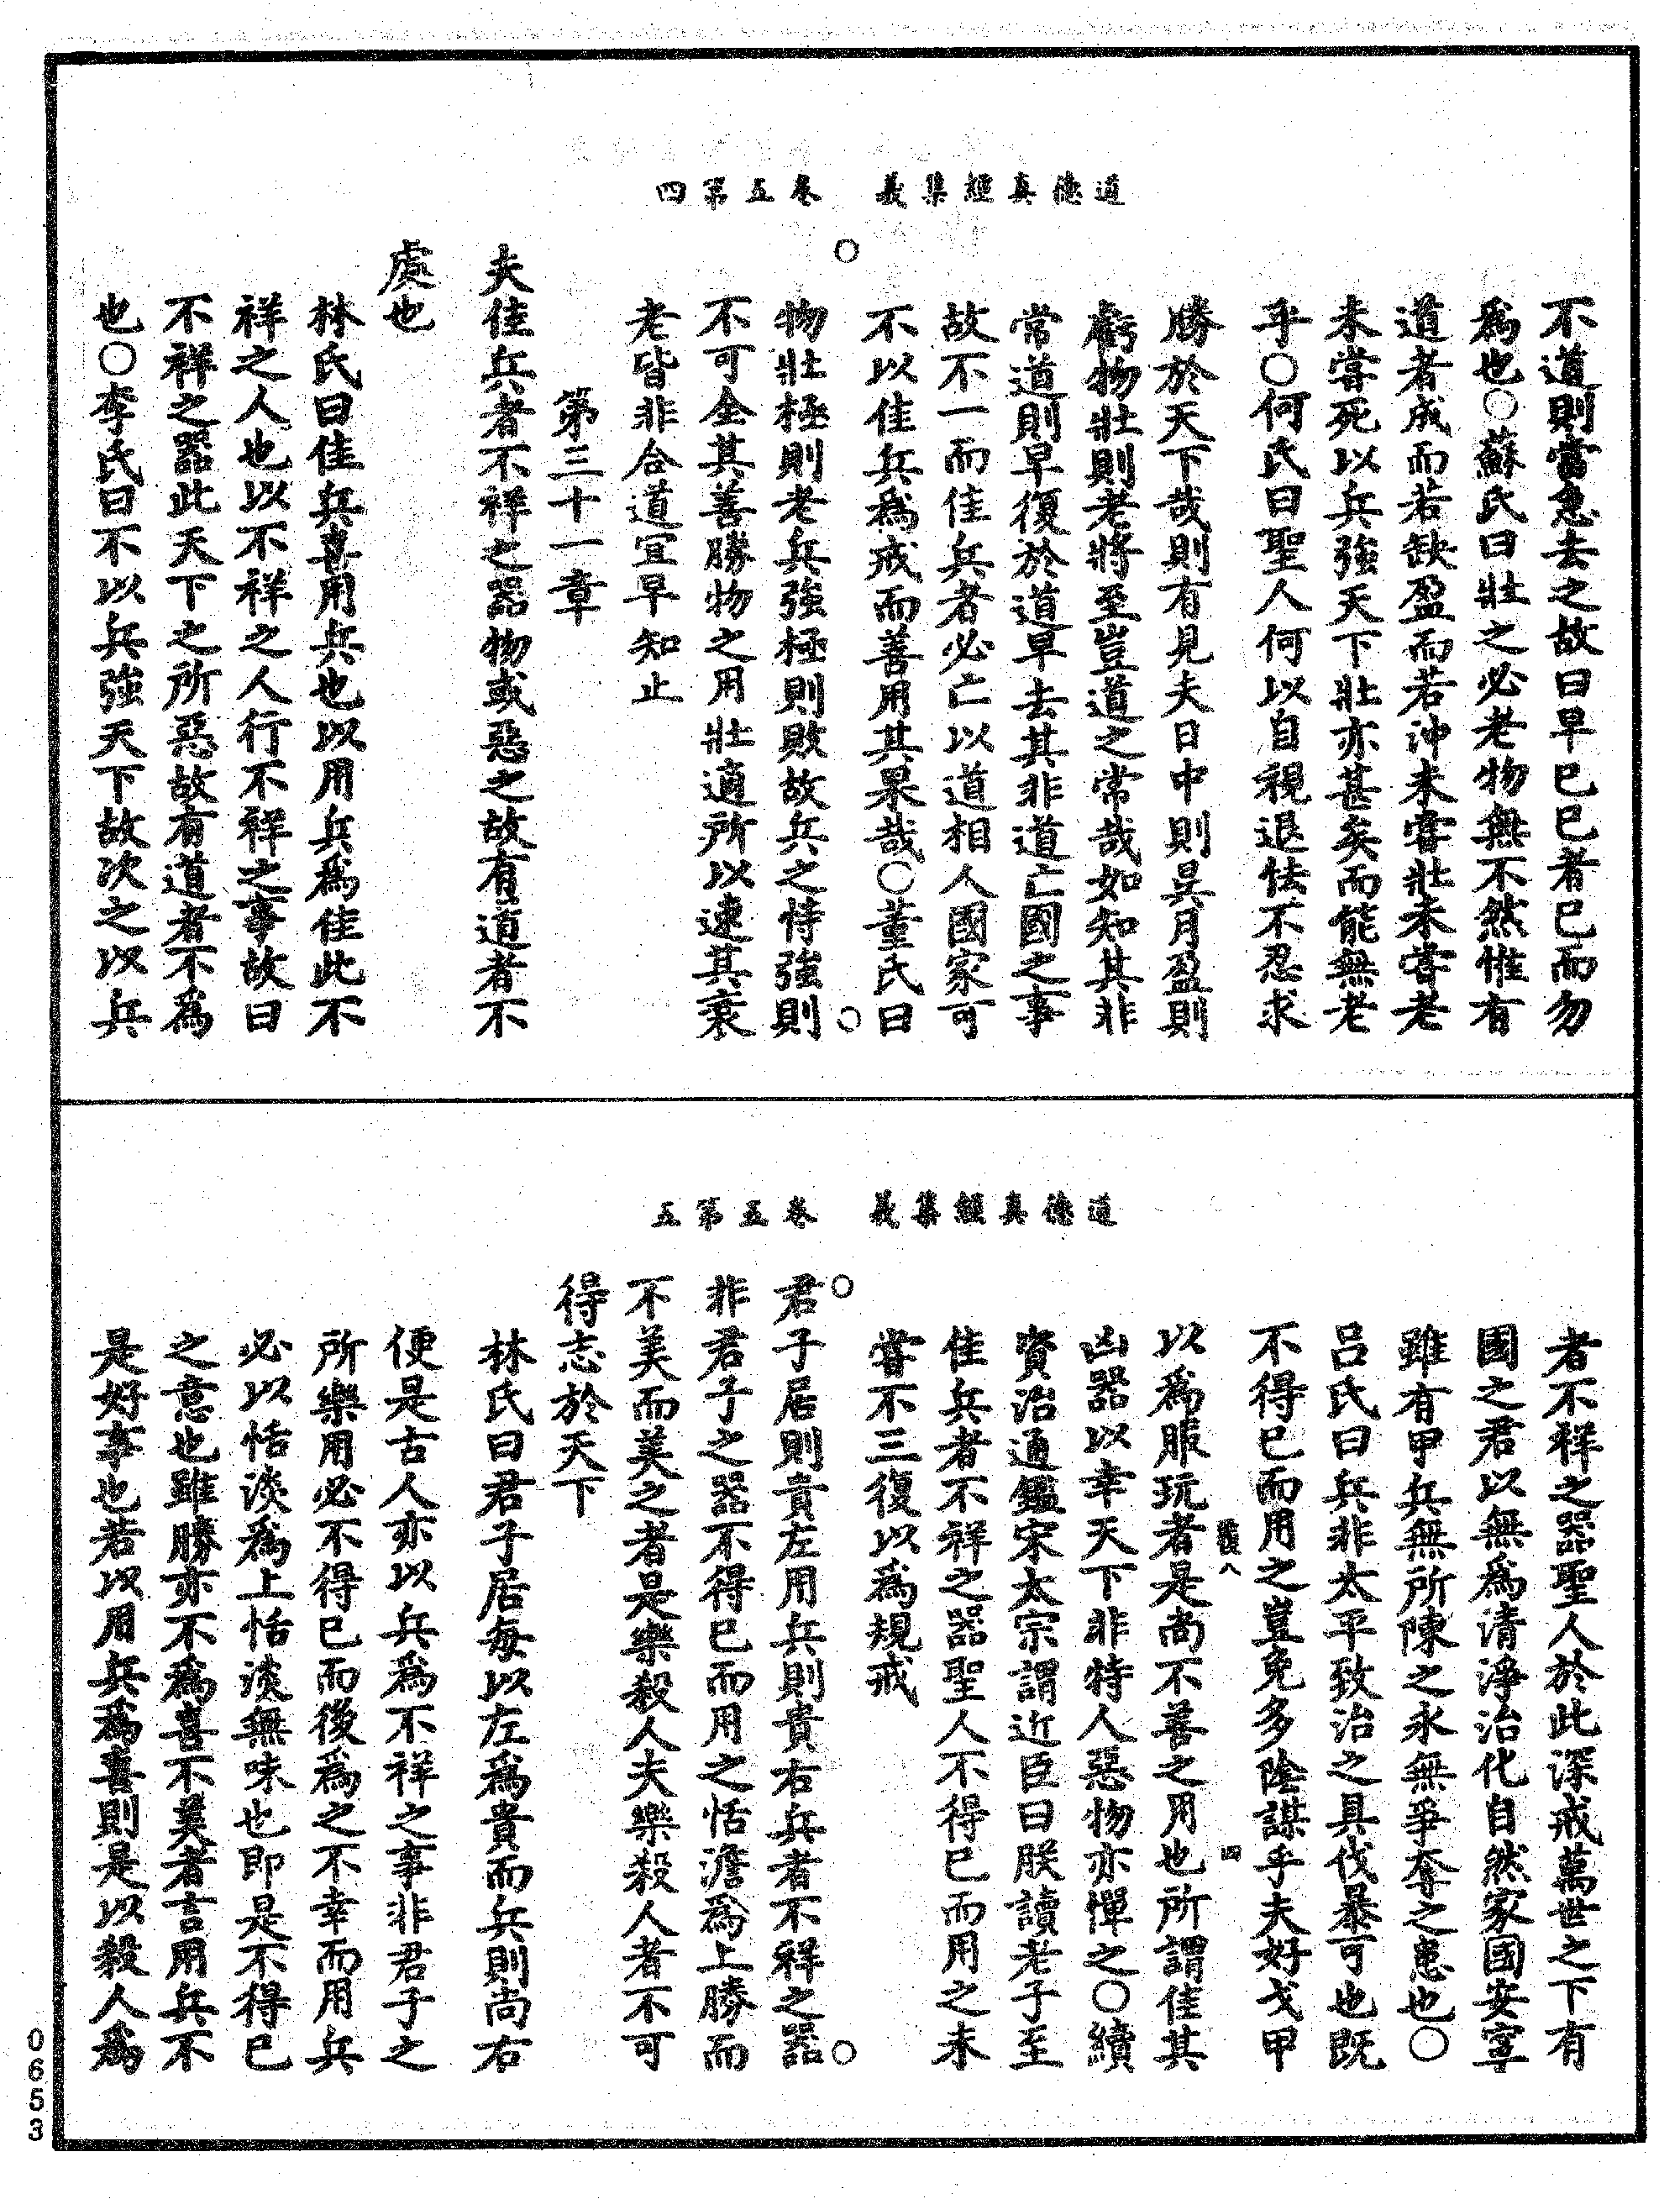 道德真經集義　卷五第四
不道則當急去之故曰早已已者已而勿
為也○蘇氏曰壯之必老物無不然惟有
道者成而若缺盈而若沖未嘗壯未嘗老
未嘗死以兵強天下壯亦甚矣而能無老
乎○何氏曰聖人何以自視退怯不忍求
勝於天下哉則有見夫日中則昃月盈則
虧物壯則老將至豈道之常哉如知其非
常道則早復於道早去其非道亡國之事
故不一而佳兵者必亡以道相人國家可
不以佳兵為戒而善用其果哉○董氏曰
物壯極則老兵強極則敗故兵之恃強則
不可全其善勝物之用壯適所以速其衰
老皆非合道宜早知止
第三十一章
夫佳兵者不祥之器物或惡之故有道者不
處也
林氏曰佳兵喜用兵也以用兵為佳此不
祥之人也以不祥之人行不祥之事故曰
不祥之器此天下之所惡故有道者不為
也○李氏曰不以兵強天下故次之以兵
道德真經集義　卷五第五
者不祥之器聖人於此深戒萬世之下有
國之君以無為清淨治化自然家國安寧
雖有甲兵無所陳之永無爭奪之患也○
呂氏曰兵非太平致治之具伐暴可也既
不得已而用之豈免多陰謀乎夫好戈甲
以為服玩者是尚不善之用也所謂佳其
凶器以幸天下非特人惡物亦憚之○續
資治通鑑宋太宗謂近臣曰朕讀老子至
佳兵者不祥之器聖人不得已而用之未
嘗不三復以為規戒
君子居則貴左用兵則貴右兵者不祥之器
非君子之器不得已而用之恬澹為上勝而
不美而美之者是樂殺人夫樂殺人者不可
得志於天下
林氏曰君子居每以左為貴而兵則尚右
便是古人亦以兵為不祥之事非君子之
所樂用必不得已而後為之不幸而用兵
必以恬淡為上恬淡無味也即是不得已
之意也雖勝亦不為喜不美者言用兵不
是好事也若以用兵為喜則是以殺人為
0653